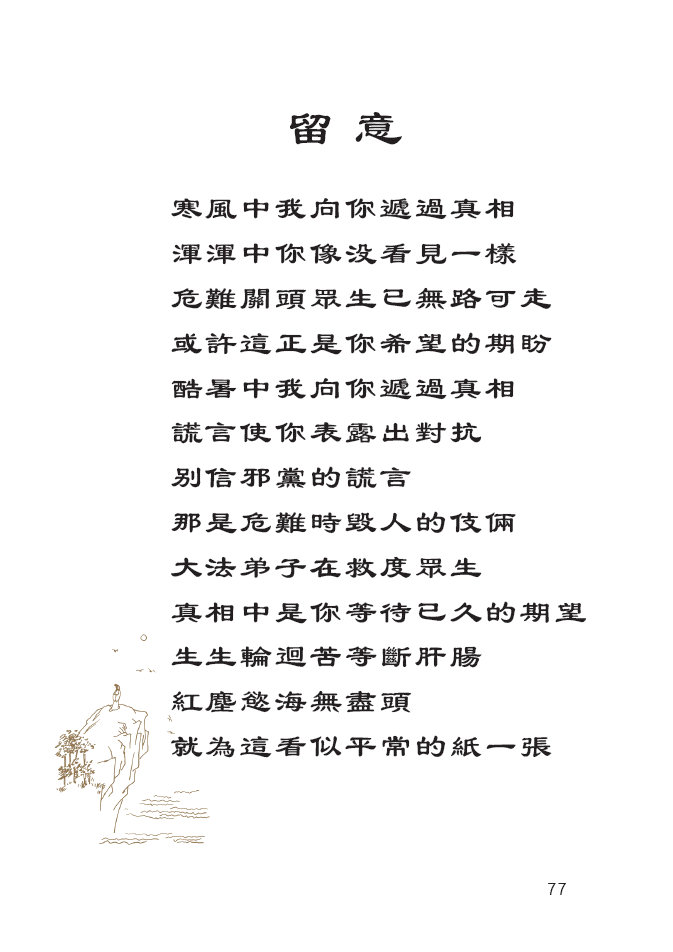 留意
寒風中我向你遞過真相
渾渾中你像没看見一樣
危難關頭眾生已無路可走
或許這正是你希望的期盼
酷暑中我向你遞過真相
謊言使你表露出對抗
别信邪黨的謊言
那是危難時毀人的伎倆
大法弟子在救度眾生
真相中是你等待已久的期望
生生輪迴苦等斷肝腸
紅塵慾海無盡頭
就為這看似平常的紙一張
77